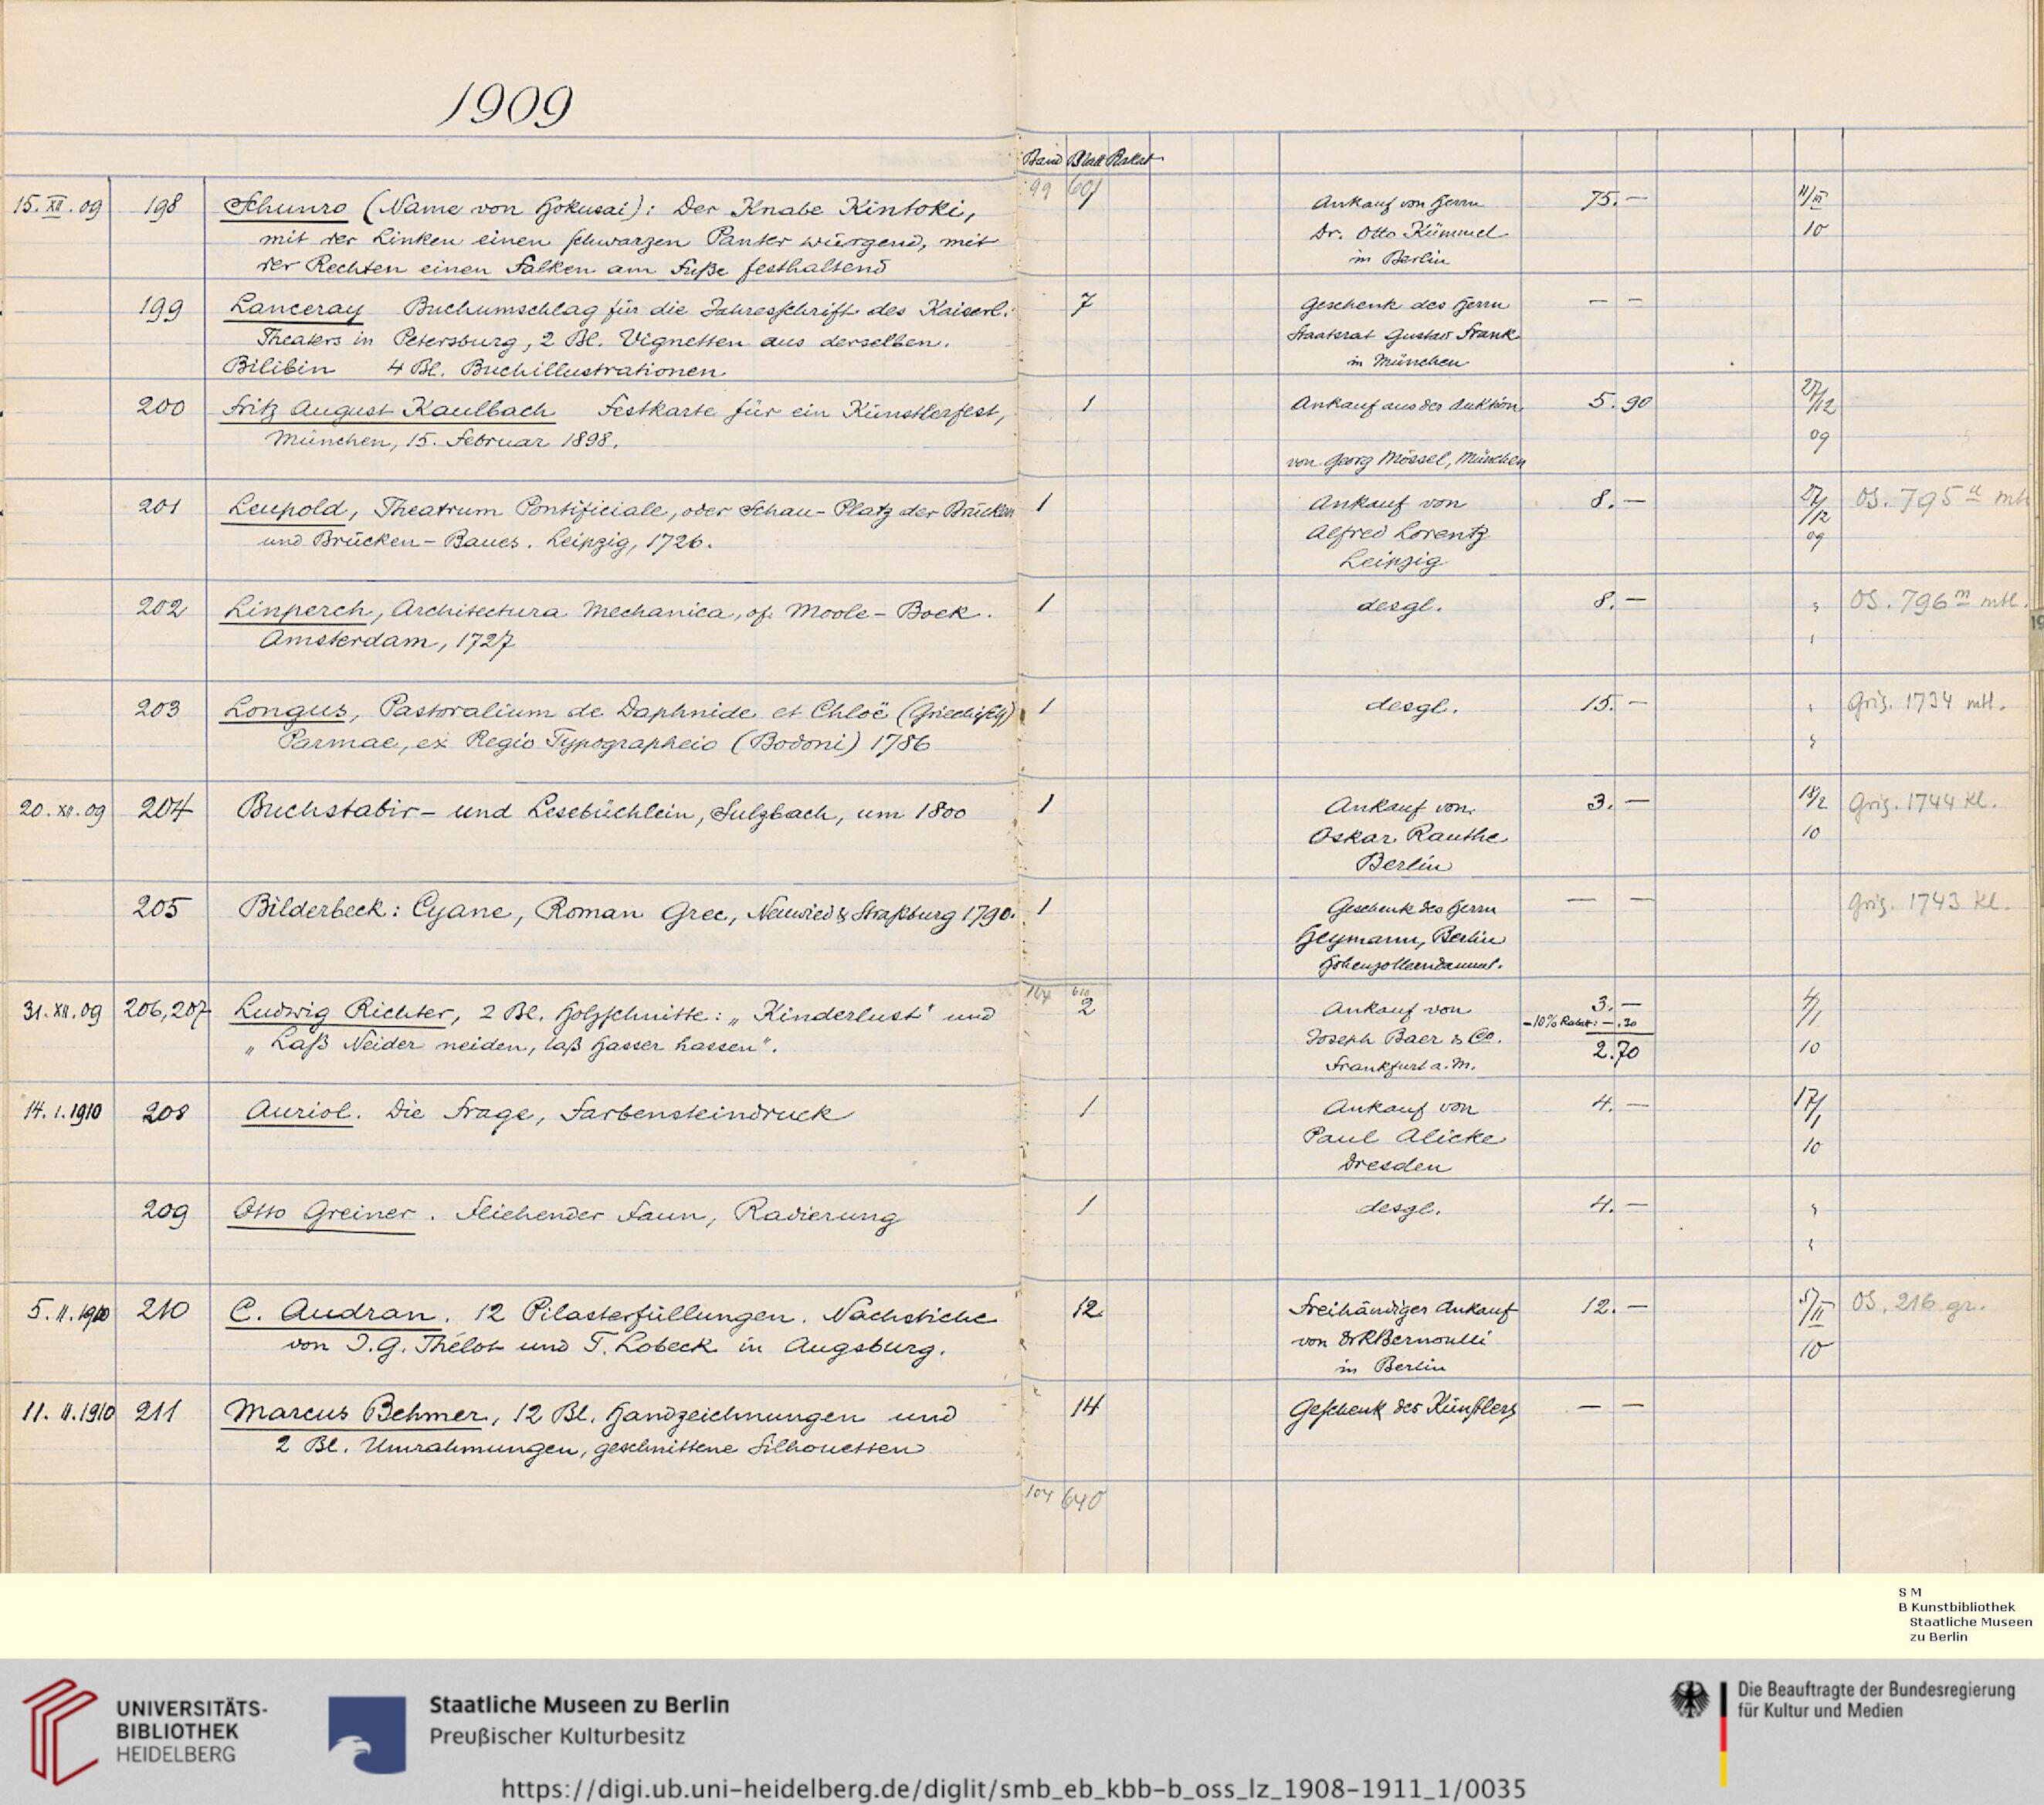 1909
Band Blatt Plakat
99 601
15. XII. 09 198 Schunro (Name von Hokusai): Der Knabe Kintoki,
mit der Linken einen schwarzen Panter würgend, mit
der Rechten einen Falken am Fuße festhaltend
Ankauf von Herrn 75.—
Dr. Otto Kümmel
in Berlin
11/III
10
199 Lanceray Buchumschlag für die Jahresschrift des Kaiserl.
Theaters in Petersburg, 2 Bl. Vignetten aus derselben.
Bilibin 4 Bl. Buchillustrationen
7 Geschenk des Herrn — —
Staatsrat Gustav Frank
in München
200 Fritz August Kaulbach Festkarte für ein Künstlerfest,
München, 15. Februar 1898.
1 Ankauf aus der Auktion 5.90
von Georg Mössel, München
27/12
09
201 Leupold, Theatrum Pontificiale, oder Schau-Platz der Brücken
und Brücken-Baues. Leipzig, 1726.
1 Ankauf von 8.—
Alfred Lorentz
Leipzig
27/12
09
OS. 795 a mtl
202 Linperch, Architectura Mechanica, of Moole-Boek.
Amsterdam, 1727
1 desgl. 8.— OS. 796 m mtl.
203 Longus, Pastoralium de Daphnide et Chloë (Griechisch)
Parmae, ex Regio Typographeio (Bodoni) 1786
1 desgl. 15.— Gris. 1734 mtl.
20. XII. 09 204 Buchstabir- und Lesebüchlein, Sulzbach, um 1800
1 Ankauf von 3.—
Oskar Rauthe
Berlin
18/2
10
Gris. 1744 kl.
205 Bilderbeck: Cyane, Roman Grec, Neuwied & Straßburg 1790.
1 Geschenk des Herrn — —
Heymann, Berlin
Hohenzollerndamm.
Gris. 1743 kl.
104 610
31. XII. 09 206, 207 Ludwig Richter, 2 Bl. Holzschnitte: „Kinderlust" und
„Laß Neider neiden, laß Hasser hassen".
2 Ankauf von 3.—
Joseph Baer & Co. -10% Rabatt: —.30
Frankfurt a. M. 2.70
4/1
10
14. 1. 1910 208 Auriol. Die Frage, Farbensteindruck
1 Ankauf von 4.—
Paul Alicke
Dresden
17/1
10
209 Otto Greiner. Fliehender Faun, Radierung
1 desgl. 4.—
5. II. 1910 210 C. Audran. 12 Pilasterfüllungen. Nachstiche
von I. G. Thélot und T. Lobeck in Augsburg.
12. Freihändiger Ankauf 12.—
von Dr R Bernoulli
in Berlin
5/II
10
OS. 216 gr.
11. II. 1910 211 Marcus Behmer, 12 Bl. Handzeichnungen und
2 Bl. Umrahmungen, geschnittene Silhouetten
14 Geschenk des Künstlers — —
104 640
S M
B Kunstbibliothek
Staatliche Museen
zu Berlin
UNIVERSITÄTS-
BIBLIOTHEK
HEIDELBERG
Staatliche Museen zu Berlin
Preußischer Kulturbesitz
Die Beauftragte der Bundesregierung
für Kultur und Medien
https://digi.ub.uni-heidelberg.de/diglit/smb_eb_kbb-b_oss_lz_1908-1911_1/0035